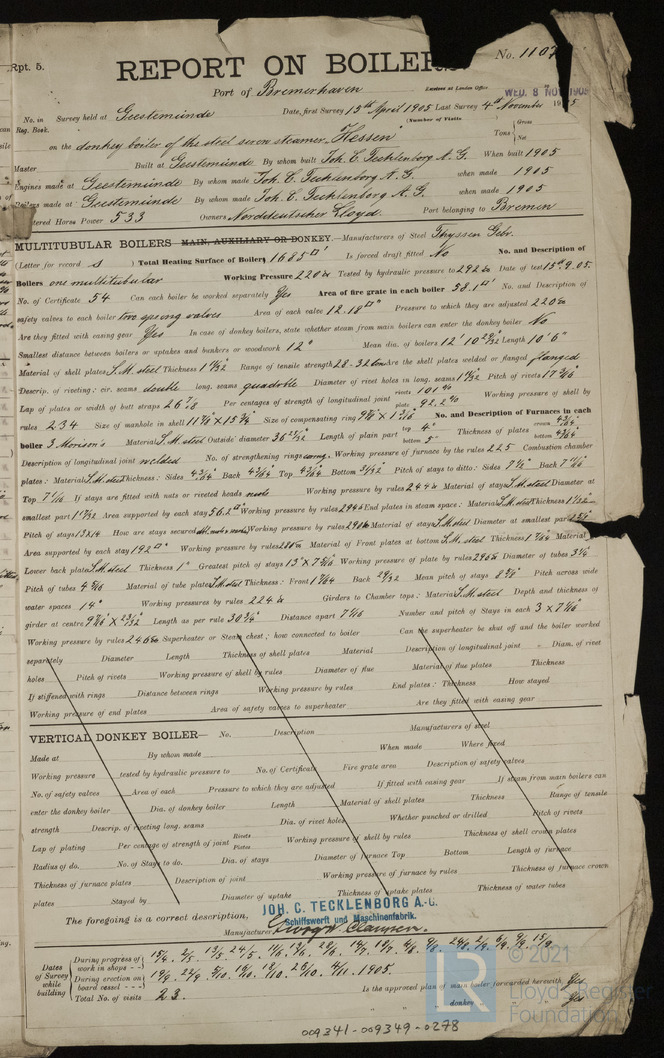 Rpt. 5.
No. 1107
REPORT ON BOILERS
Port of Bremerhaven
Received at London Office WED. 8 NOV 1905
No. in Reg. Book. Survey held at Geestemünde Date, first Survey 15th April 1905 Last Survey 4th November 1905
(Number of Visits
on the donkey boiler of the steel screw steamer "Hessen" Tons Gross Net
Master Built at Geestemünde. By whom built Joh. C. Tecklenborg A.G. When built 1905
Engines made at Geestemünde By whom made Joh. C. Tecklenborg A.G. when made 1905
Boilers made at Geestemünde By whom made Joh. C. Tecklenborg A.G. when made 1905
Registered Horse Power 533 Owners Norddeutscher Lloyd. Port belonging to Bremen
MULTITUBULAR BOILERS MAIN, AUXILIARY OR DONKEY.—Manufacturers of Steel Thyssen Gebr.
(Letter for record S) Total Heating Surface of Boilers 1685 □' Is forced draft fitted No No. and Description of
Boilers one multitubular Working Pressure 220 Tested by hydraulic pressure to 292 Date of test 15.9.05.
No. of Certificate 54 Can each boiler be worked separately Yes Area of fire grate in each boiler 58.1 □' No. and Description of
safety valves to each boiler two spring valves Area of each valve 12.18 □" Pressure to which they are adjusted 220
Are they fitted with easing gear Yes In case of donkey boilers, state whether steam from main boilers can enter the donkey boiler No
Smallest distance between boilers or uptakes and bunkers or woodwork 12" Mean dia. of boilers 12' 10 29/32 Length 10' 6"
Material of shell plates S.M. steel Thickness 1 11/32 Range of tensile strength 28-32 tons Are the shell plates welded or flanged flanged
Descrip. of riveting: cir. seams double long. seams quadruble Diameter of rivet holes in long. seams Pitch of rivets
Lap of plates or width of butt straps 26 7/8 Per centages of strength of longitudinal joint rivets 101 % plate 92.2 % Working pressure of shell by
rules 234 Size of manhole in shell Size of compensating ring No. and Description of Furnaces in each
boiler 3 Morison's Material S.M. steel Outside diameter Length of plain part top 4" bottom 5" Thickness of plates crown 43/64 bottom 43/64
Description of longitudinal joint welded No. of strengthening rings Working pressure of furnace by the rules 225 Combustion chamber
plates: Material S.M. steel Thickness: Sides 43/64 Back 43/64 Top 43/64 Bottom Pitch of stays to ditto: Sides 7 1/2" Back
Top If stays are fitted with nuts or riveted heads nuts Working pressure by rules 244 Material of stays S.M. steel Diameter at
smallest part Area supported by each stay 56.2 □" Working pressure by rules 294 End plates in steam space: Material S.M. steel Thickness
Pitch of stays 13x14 How are stays secured Working pressure by rules Material of stays S.M. steel Diameter at smallest part
Area supported by each stay 192 □" Working pressure by rules Material of Front plates at bottom S.M. steel Thickness Material
Lower back plate S.M. steel Thickness 1" Greatest pitch of stays Working pressure of plate by rules Diameter of tubes 3 1/4
Pitch of tubes Material of tube plates S.M. steel Thickness: Front Back 29/32 Mean pitch of stays Pitch across wide
water spaces 14" Working pressures by rules 224 Girders to Chamber tops: Material S.M. steel Depth and thickness of
girder at centre Length as per rule Distance apart Number and pitch of Stays in each
Working pressure by rules 246 Superheater or Steam chest; how connected to boiler Can the superheater be shut off and the boiler worked
separately Diameter Length Thickness of shell plates Material Description of longitudinal joint Diam. of rivet
holes Pitch of rivets Working pressure of shell by rules Diameter of flue Material of flue plates Thickness
If stiffened with rings Distance between rings Working pressure by rules End plates: Thickness How stayed
Working pressure of end plates Area of safety valves to superheater Are they fitted with easing gear
VERTICAL DONKEY BOILER— No. Description Manufacturers of steel
Made at By whom made When made Where fixed
Working pressure tested by hydraulic pressure to No. of Certificate Fire grate area Description of safety valves
No. of safety valves Area of each Pressure to which they are adjusted If fitted with easing gear If steam from main boilers can
enter the donkey boiler Dia. of donkey boiler Length Material of shell plates Thickness Range of tensile
strength Descrip. of riveting long. seams Dia. of rivet holes Whether punched or drilled Pitch of rivets
Lap of plating Per centage of strength of joint Rivets Plates Working pressure of shell by rules Thickness of shell crown plates
Radius of do. No. of Stays to do. Dia. of stays Diameter of furnace Top Bottom Length of furnace
Thickness of furnace plates Description of joint Working pressure of furnace by rules Thickness of furnace crown
plates Stayed by Diameter of uptake Thickness of uptake plates Thickness of water tubes
The foregoing is a correct description,
JOH. C. TECKLENBORG A.-G.
Schiffswerft und Maschinenfabrik.
Manufacturer.
Dates of Survey while building
During progress of work in shops - -
During erection on board vessel - - - 1905.
Total No. of visits 23.
Is the approved plan of main boiler forwarded herewith Yes
" " " donkey " " " Yes
© 2021
LR
Lloyd's Register
Foundation
009341-009349-0278